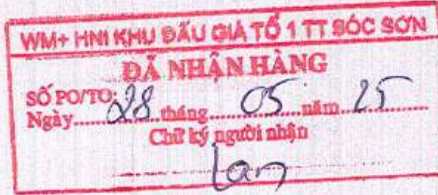 WM+ HNI KHU ĐẤU GIÁ TỔ 1 TT SÓC SƠN
ĐÃ NHẬN HÀNG
SỐ PO/TO:
Ngày 28 tháng 05 năm 25
Chữ ký người nhận
Lan